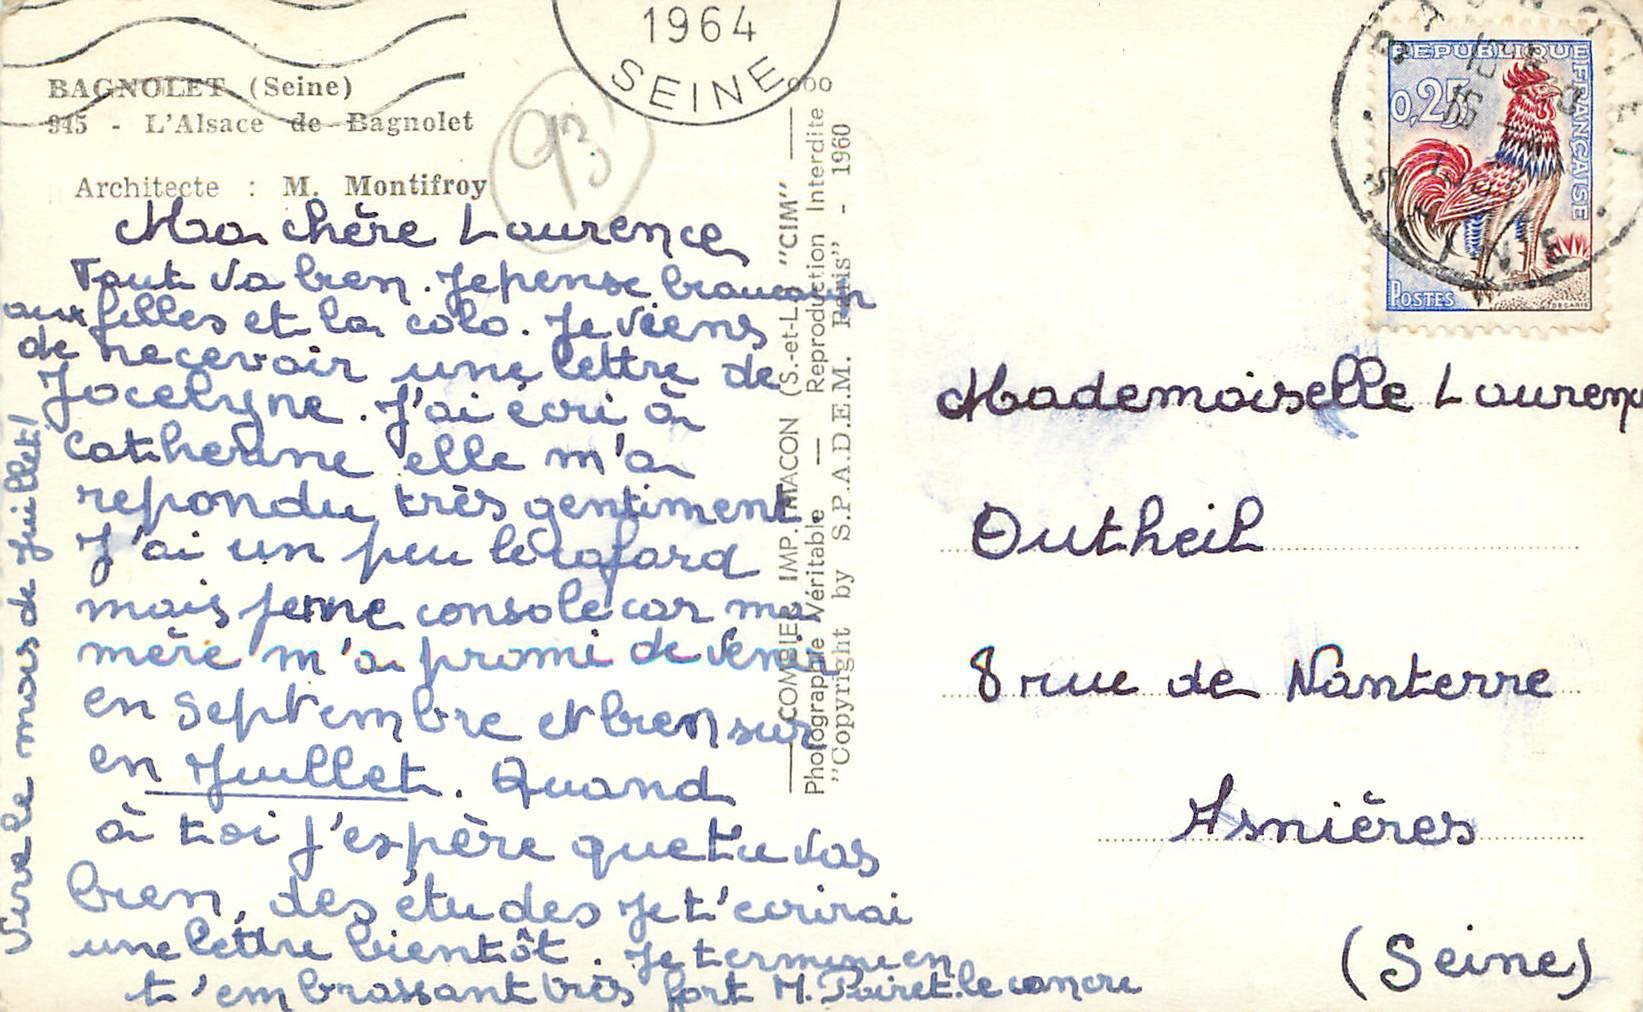 1964
SEINE
BAGNOLET (Seine)
945 - L'Alsace de Bagnolet
Architecte : M. Montifroy
93
Ma chère Laurence
Tout va bien. Je pense beaucoup
aux filles et la colo. Je viens
de recevoir une lettre de
Jocelyne. J'ai écri à
Catherine elle m'a
repondu très gentiment
J'ai un peu le cafard
mais je me console car ma
mère m'a promi de venir
en Septembre et bien sur
en Juillet. Quand
à toi j'espère que tu vas
bien, des études je t'écrirai
une lettre bientôt. Je termine en
t'embrassant très fort M. Poiret le cancre
Vive le mois de Juillet!
COMBIER IMP. MACON (S.-et-L.) "CIM"
Photographie Véritable — Reproduction Interdite
"Copyright by S.P.A.D.E.M. Paris" - 1960
REPUBLIQUE FRANÇAISE
0,25
POSTES
DECARIS
BAGNOLET
SEINE
Mademoiselle Laurence
Dutheil
8 rue de Nanterre
Asnières
(Seine)